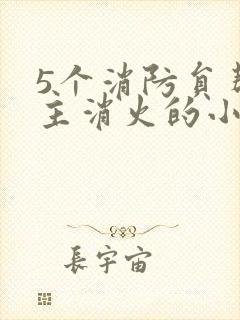 5个消防员帮
主消火的小
長宇宙